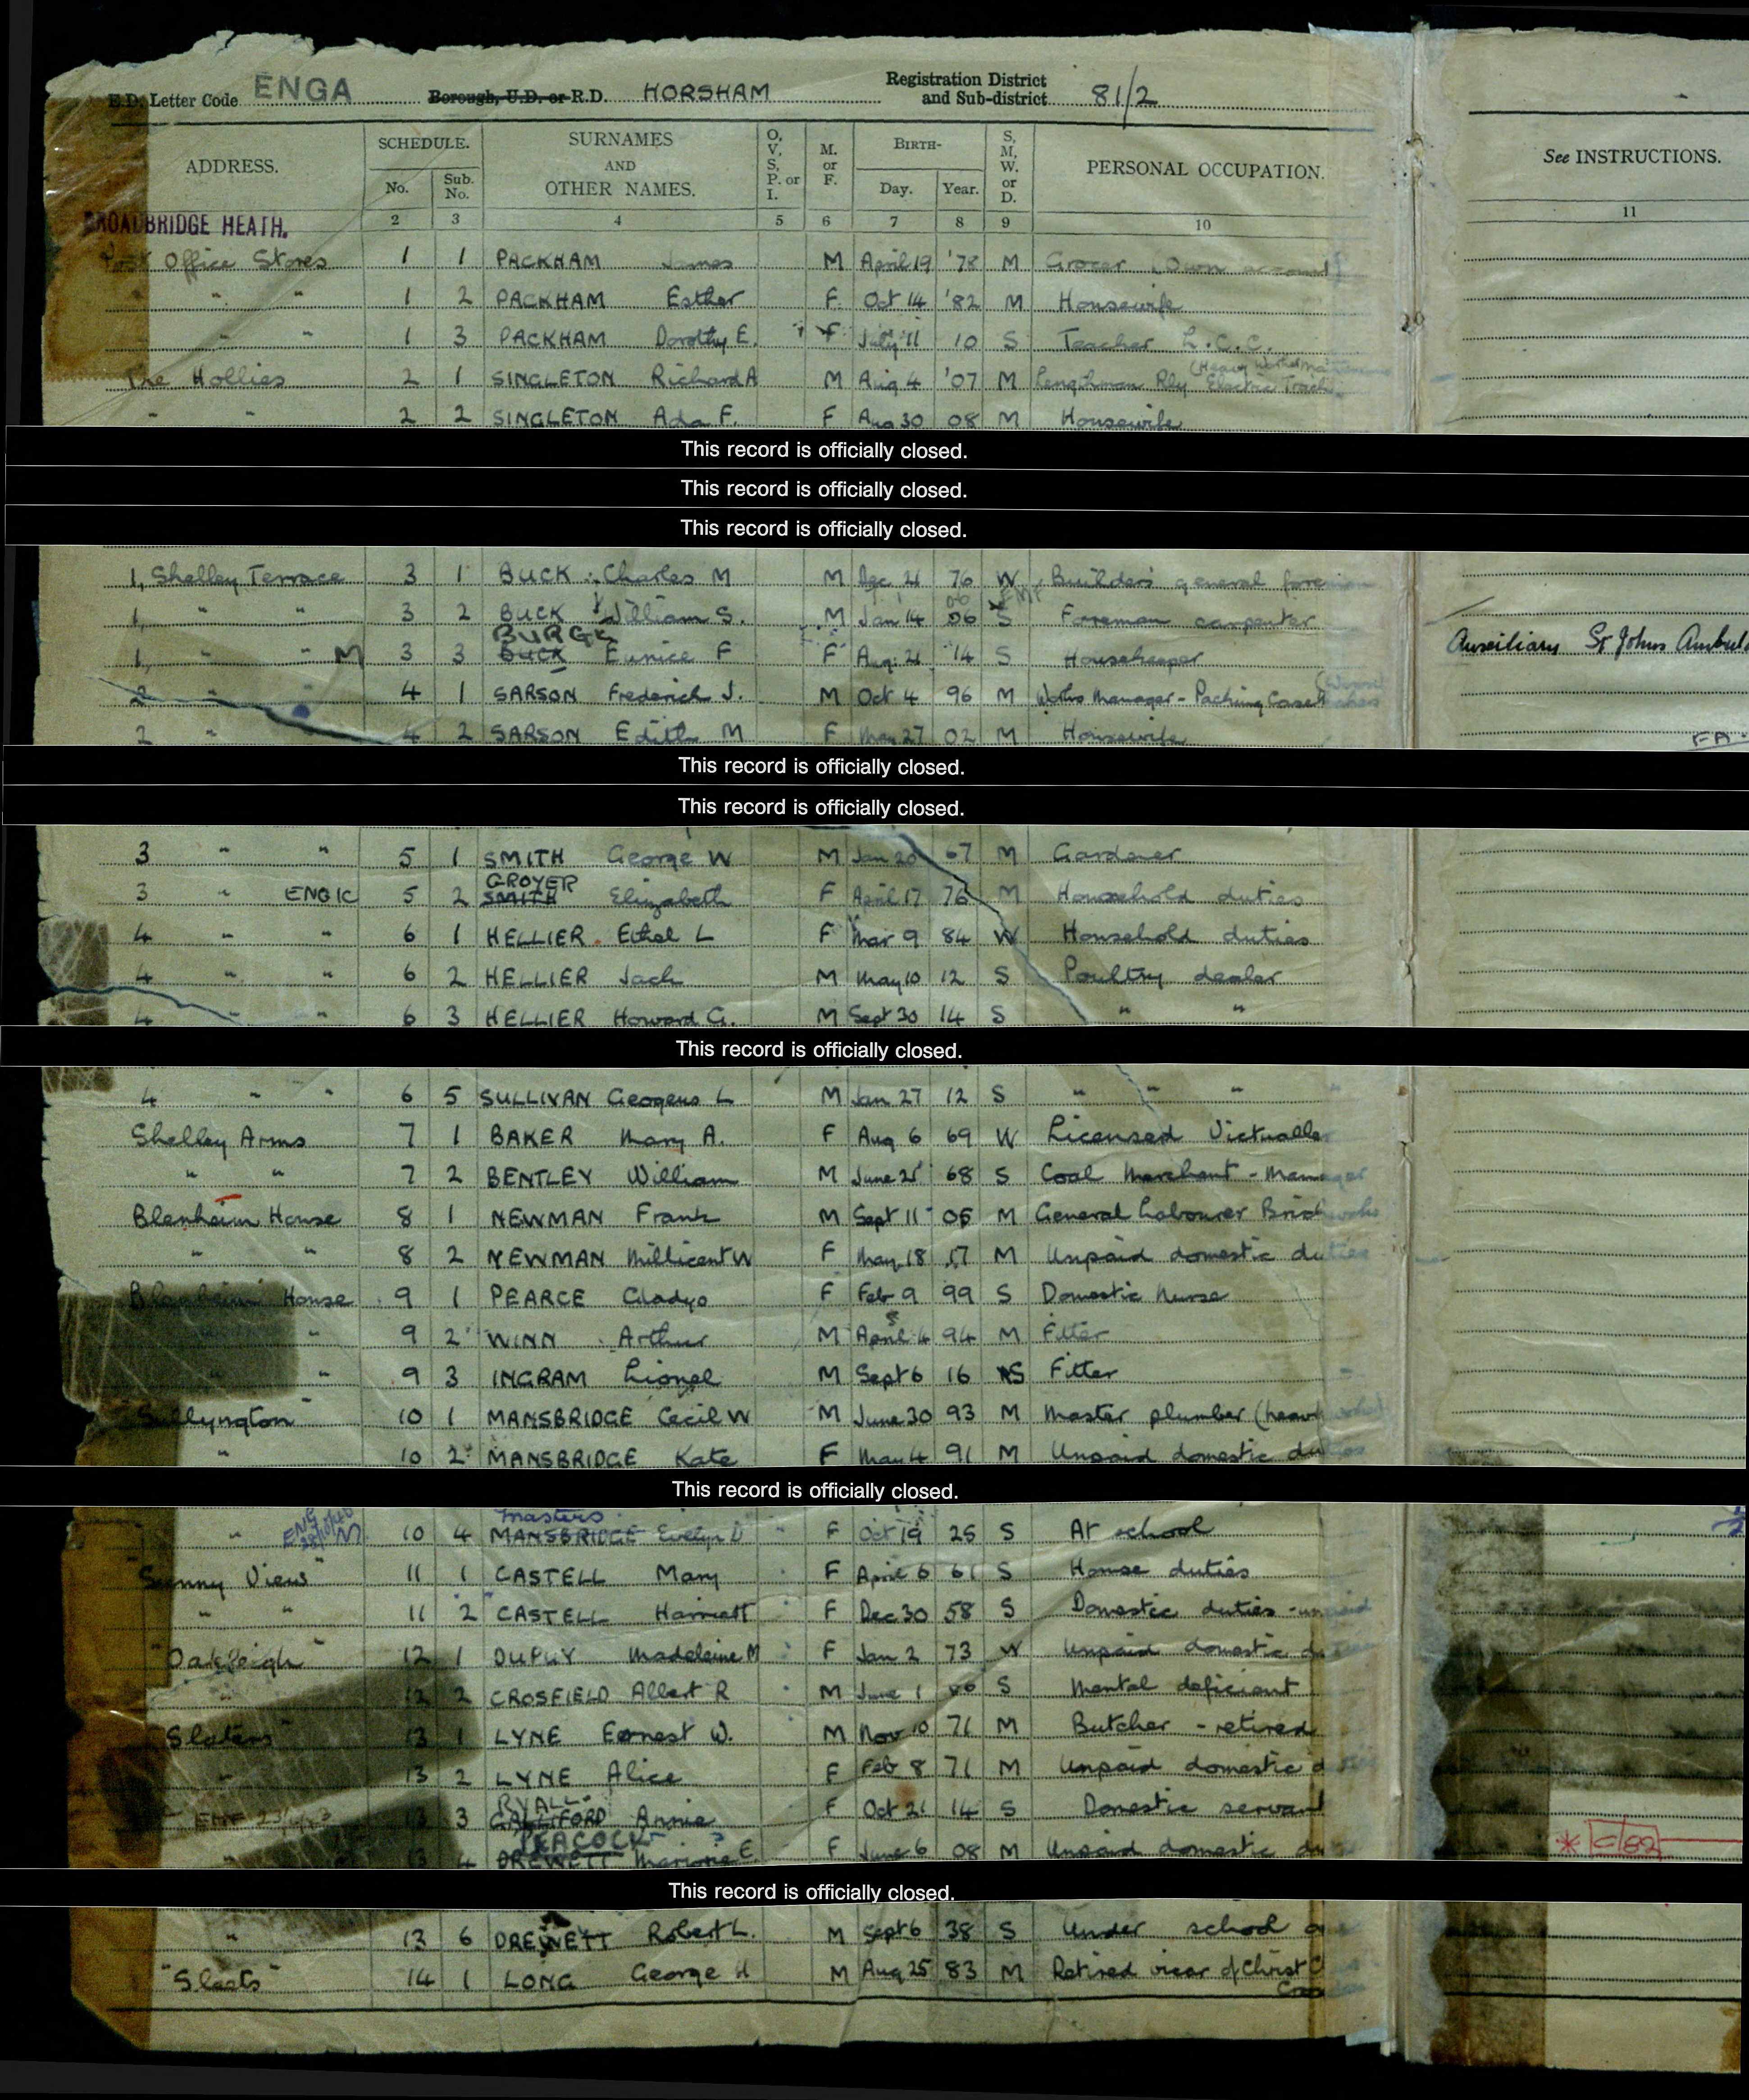 E.D. Letter Code ENGA Borough, U.D. or R.D. HORSHAM Registration District and Sub-district 81/2
ADDRESS. SCHEDULE. No. Sub. No. SURNAMES AND OTHER NAMES. O, V, S, P. or I. M. or F. BIRTH- Day. Year. S, M, W. or D. PERSONAL OCCUPATION. See INSTRUCTIONS.
2 3 4 5 6 7 8 9 10 11
BROADBRIDGE HEATH.
Post Office Stores 1 1 PACKHAM James M April 19 '78 M Grocer (Own account)
" " 1 2 PACKHAM Esther F Oct 14 '82 M Housewife
" " 1 3 PACKHAM Dorothy E. F July 11 10 S Teacher L.C.C.
The Hollies 2 1 SINGLETON Richard A M Aug 4 '07 M Lengthman Rly Electric Track (Heavy Worker)
" " 2 2 SINGLETON Ada F. F Aug 30 08 M Housewife
This record is officially closed.
This record is officially closed.
This record is officially closed.
1, Shelley Terrace 3 1 BUCK Charles M M Dec 21 76 W Builders general fore
1, " " 3 2 BUCK William S. M Jan 14 06 S Foreman carpenter
BURGE
1, " " M 3 3 BUCK Eunice F F Aug 21 '14 S Housekeeper Auxiliary St Johns Ambul
2 " " 4 1 SARSON Frederick J. M Oct 4 96 M Works Manager - Packing Case
2 " 4 2 SARSON Edith M F May 27 02 M Housewife
This record is officially closed.
This record is officially closed.
3 " " 5 1 SMITH George W M Jan 20 67 M Gardener
GROYER
3 " ENGIC 5 2 SMITH Elizabeth F April 17 76 M Household duties
4 " " 6 1 HELLIER Ethel L F Mar 9 84 W Household duties
4 " " 6 2 HELLIER Jack M May 10 12 S Poultry dealer
4 " " 6 3 HELLIER Howard G. M Sept 30 14 S " "
This record is officially closed.
4 " " 6 5 SULLIVAN Geogeus L M Jan 27 12 S " " "
Shelley Arms 7 1 BAKER Mary A. F Aug 6 69 W Licensed Victualler
" " 7 2 BENTLEY William M June 25 68 S Coal Merchant - Manager
Blenheim House 8 1 NEWMAN Frank M Sept 11 05 M General Labourer Brickworks
" " 8 2 NEWMAN Millicent W F May 18 17 M Unpaid domestic duties
Blenheim House 9 1 PEARCE Gladys F Feb 9 99 S Domestic Nurse
" 9 2 WINN Arthur M April 4 94 M Fitter
" " 9 3 INGRAM Lionel M Sept 6 16 S Fitter
"Sullyngton" 10 1 MANSBRIDGE Cecil W M June 30 93 M Master plumber (heavy
" 10 2 MANSBRIDGE Kate F May 4 91 M Unpaid domestic duties
This record is officially closed.
Masters
" ENG 10 4 MANSBRIDGE Evelyn D F Oct 19 25 S At school
"Sunny View" 11 1 CASTELL Mary F April 6 61 S House duties
" " 11 2 CASTELL Harriett F Dec 30 58 S Domestic duties - unpaid
"Oakleigh" 12 1 DUPUY Madeleine M F Jan 2 73 W Unpaid domestic d
" 12 2 CROSFIELD Albert R M June 1 S Mental deficient
"Slaters" 13 1 LYNE Ernest W. M Nov 10 71 M Butcher - retired
" 13 2 LYNE Alice F Feb 8 71 M Unpaid domestic d
RYALL
13 3 GALLIFORD Annie F Oct 21 14 S Domestic servant
PEACOCK
" 13 4 DREWETT Marjorie E F June 6 08 M Unpaid domestic du * C/82
This record is officially closed.
" 13 6 DREWETT Robert L. M Sept 6 38 S Under school a
"Sleets" 14 1 LONG George H M Aug 25 83 M Retired vicar of Christ C